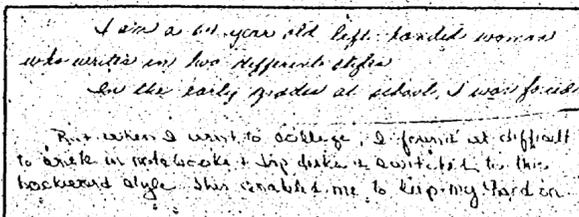 I am a 64 year old left-handed woman
who writes in two different styles
In the early grades at school, I was forced
But when I went to college, I found it difficult
to in notebooks + top desks + switched to this
backward style. This enabled me to keep my hand on